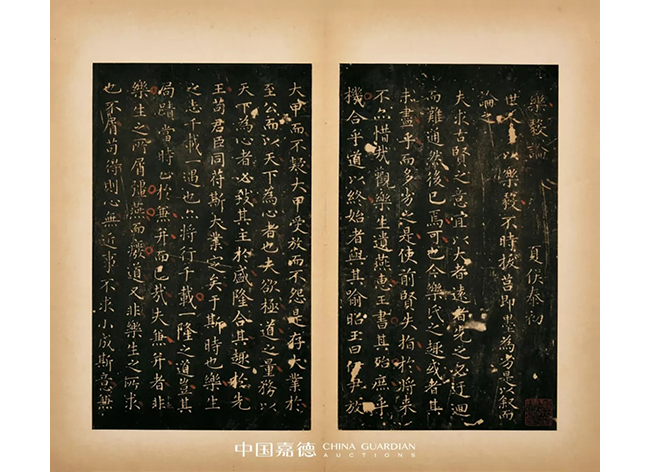 樂毅論 夏侯泰初
世人多以樂毅不時拔莒即墨為劣是以叙而
論之
夫求古賢之意宜以大者遠者先之必迂迴
而難通然後已焉可也今樂氏之趣或者其
未盡乎而多劣之是使前賢失指於將來
不亦惜哉觀樂生遺燕惠王書其殆庶乎
機合乎道以終始者與其喻昭王曰伊尹放
大甲而不疑大甲受放而不怨是存大業於
至公而以天下為心者也夫欲極道之量務以
天下為心者必致其主於盛隆合其趣於先
王苟君臣同符斯大業定矣于斯時也樂生
之志千載一遇也亦將行千載一隆之道豈其
局蹟當時止於兼并而已哉夫兼并者非
樂生之所屑彊燕而廢道又非樂生之所求
也不屑苟得則心無近事不求小成斯意兼
中国嘉德 CHINA GUARDIAN
AUCTIONS